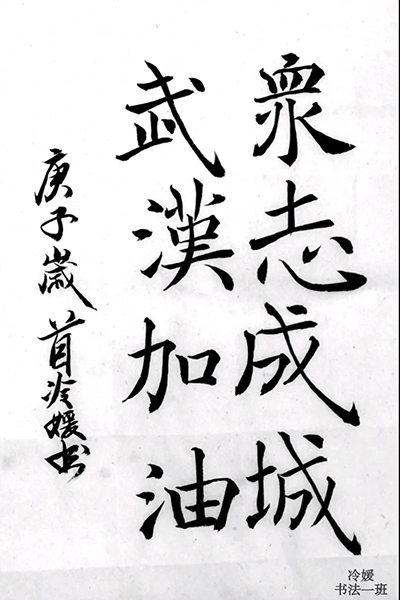 眾志成城
武漢加油
庚子歲首冷媛书
冷媛
书法一班